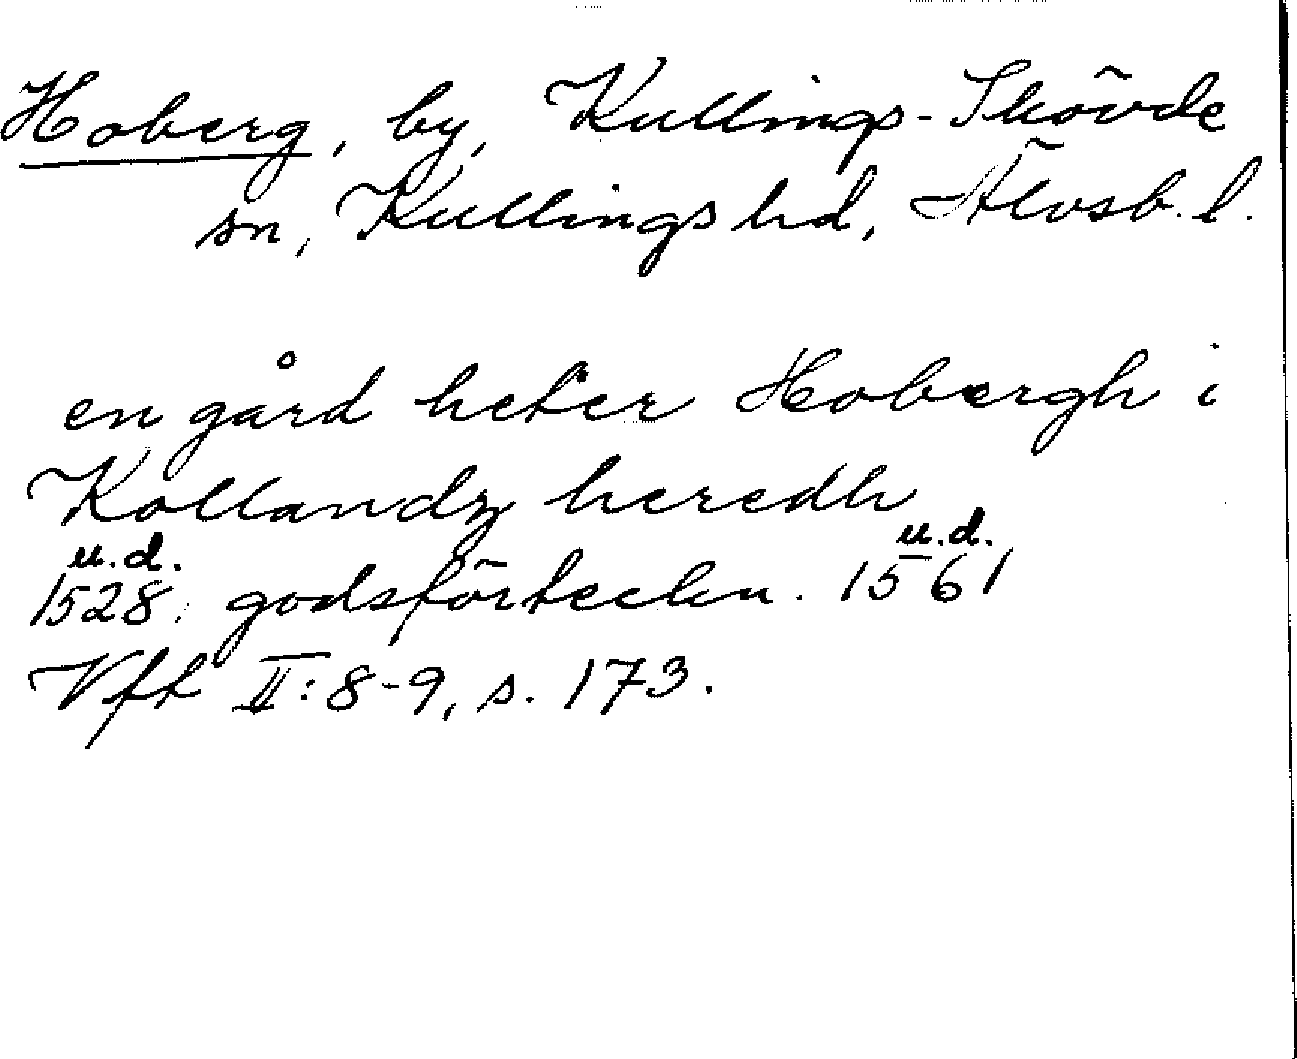 Hoberg, by, Kullings-Skövde
sn, Kullings hd, Älvsb. l.
en gård heter Hobergh i
Kollandz heredh
u.d. u.d.
1528, godsförteckn. 1561
Vfk II: 8-9, s. 173.